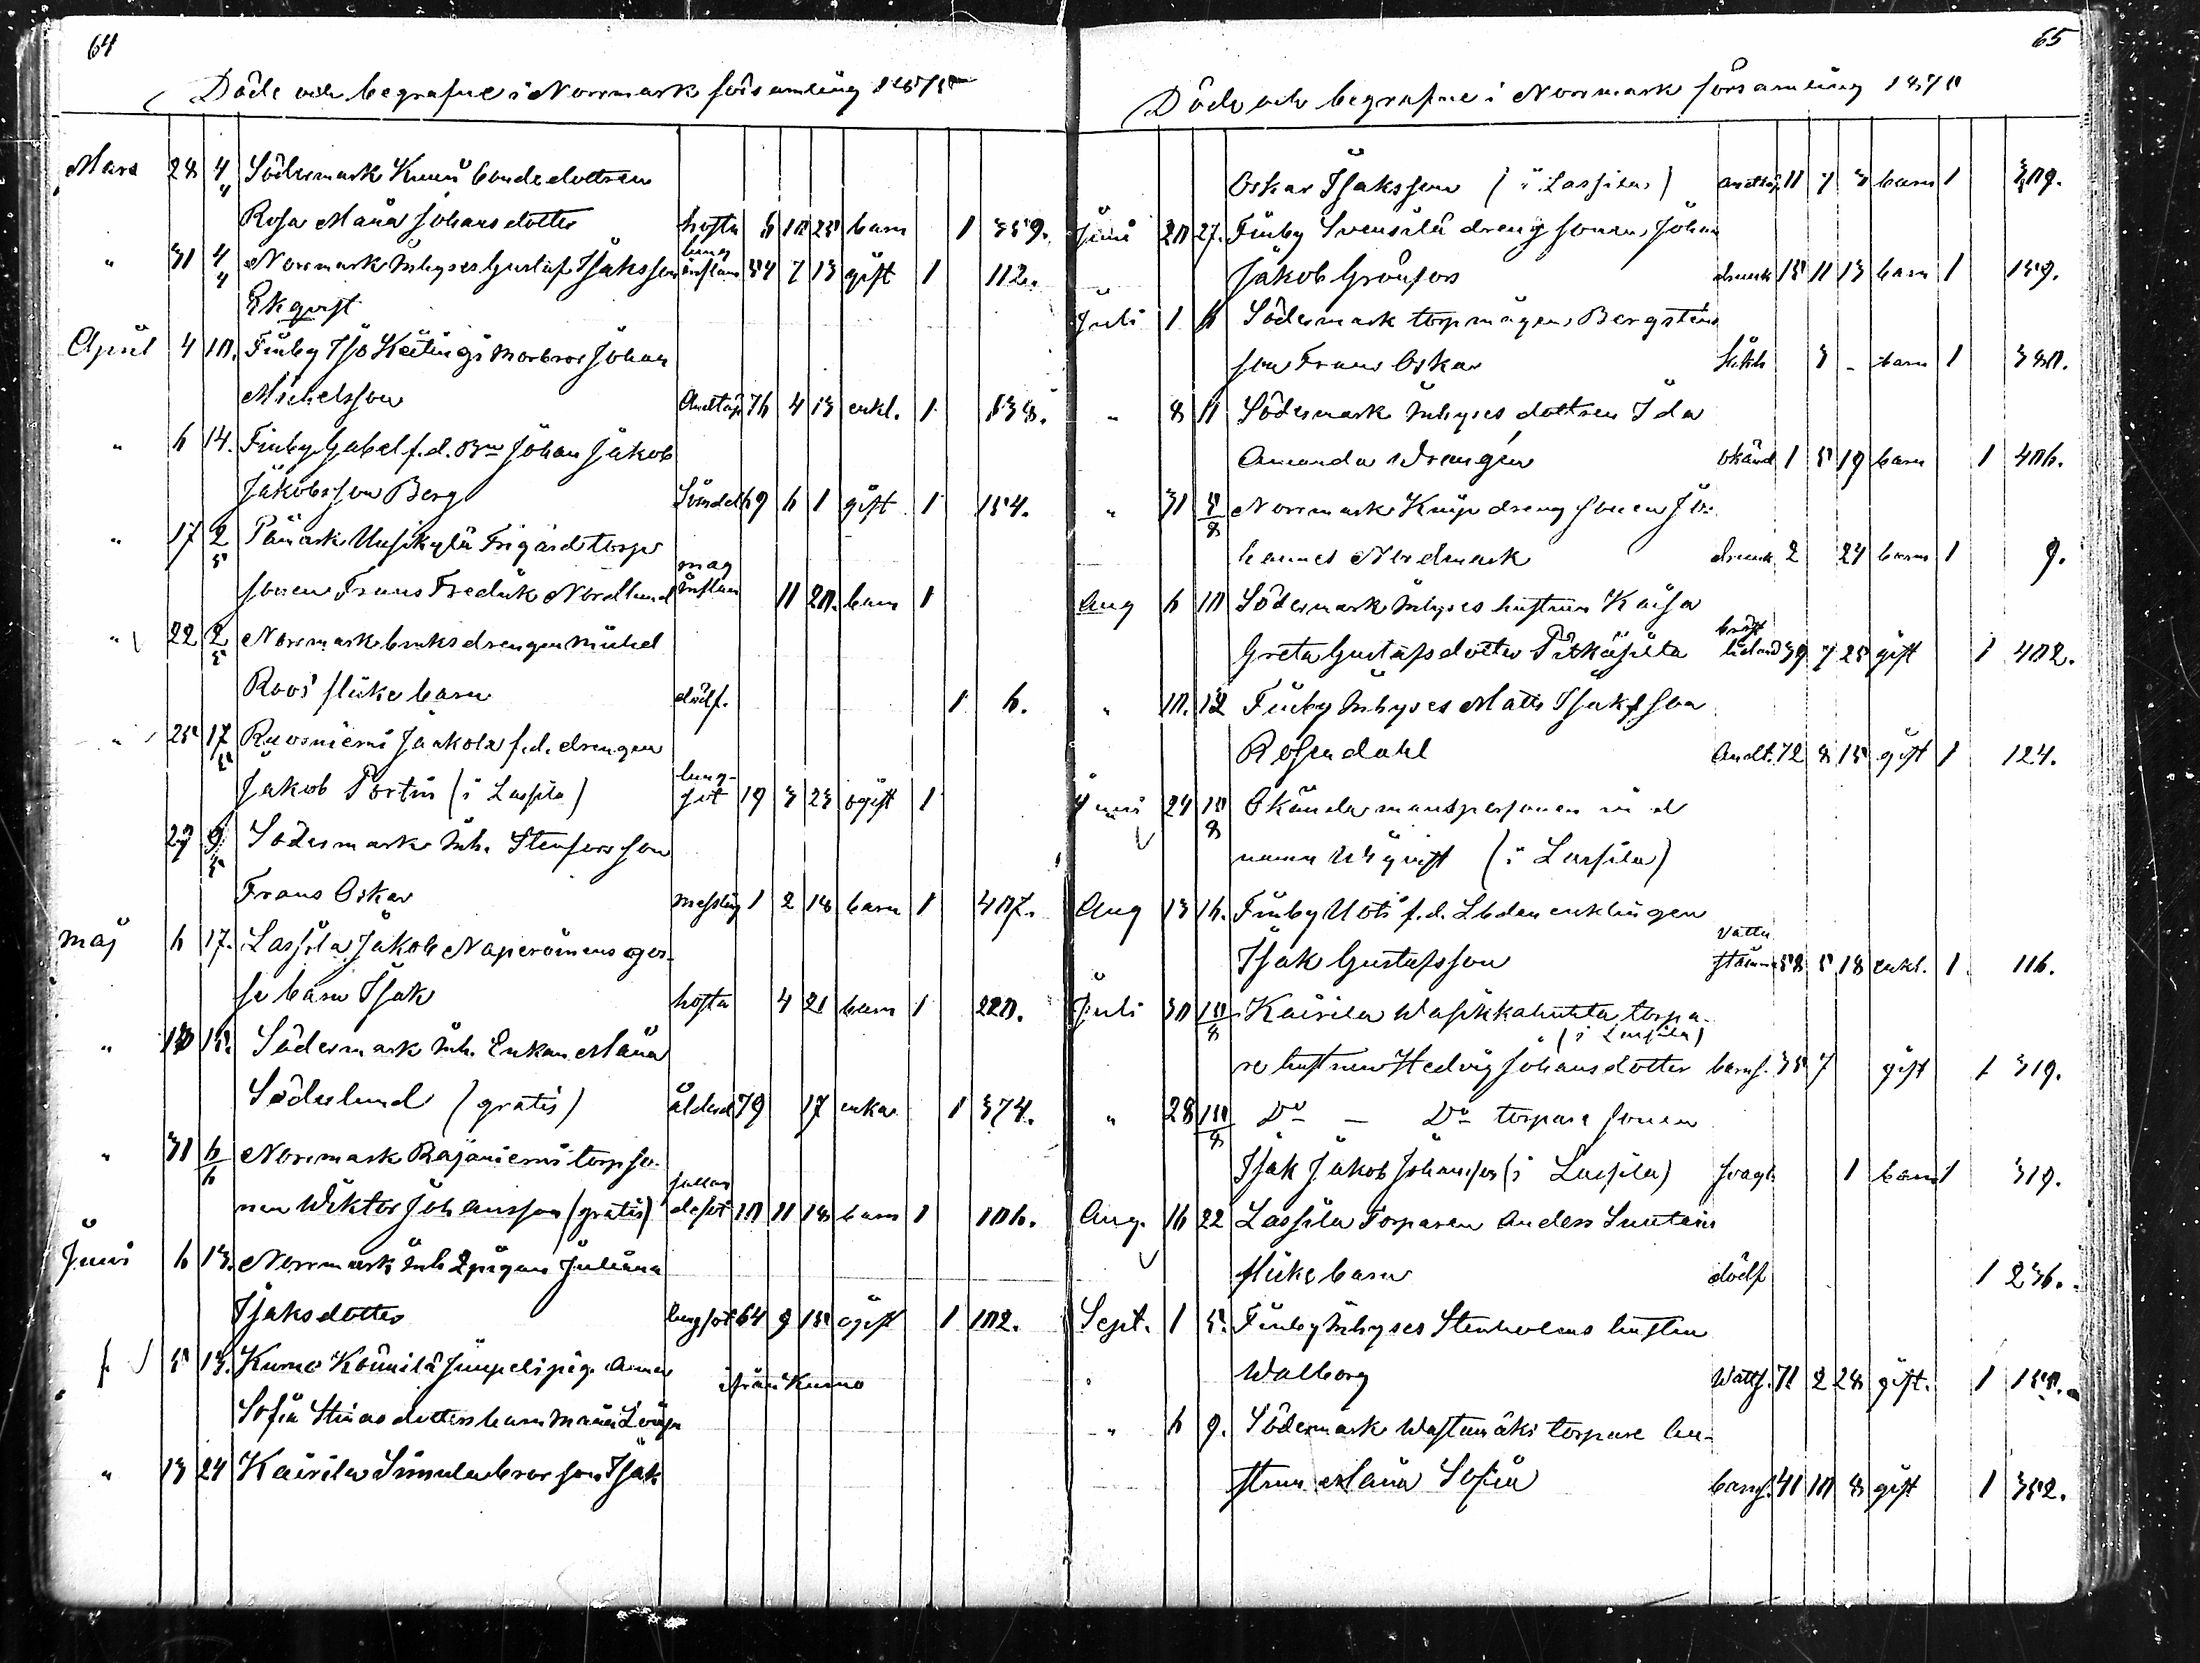 64
Döde och begrafne i Norrmark församling 1875
Mars 28 4/4 Södermark Knuus bondedottren
Rosa Maria Johansdotter hosta 6 10 25 barn 1 359.
" 31 4/4 Norrmark Inhyses Gustaf Isaksson lung inflam 54 7 13 gift 1 112.
Ekqvist
April 4 10. Finby Iso Keitingi morbror Johan
Michelsson Andtäp 76 4 13 enkl. 1 138.
" 6 14. Finby Gabel f.d. Bn Johan Jakob
Jakobsson Berg 69 6 1 gift 1 154.
" 17 2/5 Påmark Uusikylä Frigård torp
sonen Frans Fredrik Nordlund mag inflam 11 20. barn 1
" 22 2/5 Norrmark bruksdrengen Mickel
Roos flicke barn dödf. 1 6.
" 25 17/5 Ruosniemi Jaakola f.d. drengen
Jakob Portin (i Lassila) lung- sot 19 3 23 ogift 1
29 9/5 Södermark Inh. Stenfors son
Frans Oskar messling 1 2 18 barn 1 407.
Maj 6 17. Lassila Jakob Naperöinens gos-
se barn Isak hosta 4 21 barn 1 220.
" 13 15. Södermark Inh. Enkan Maria
Söderlund (gratis) ålderd 79 17 enka 1 374.
" 31 6/6 Norrmark Rajaniemi torp so-
nen Wiktor Johansson (gratis) fallandesot 10 11 18 barn 1 106.
Juni 6 13. Norrmark Inh pigan Juliana
Isaksdotter lungsot 64 9 15 ogift 1 102.
5 13. Kumo Koimila pig. Anna
Sofia Stinasdotters barn Maria Lovisa ifrån Kumo
" 13 24 Kairila Simula bror son Isak
65
Döde och begrafne i Norrmark församling 1875
Oskar Isaksson (i Lassila) andtäp 11 7 3 barn 1 309.
Juni 20 27. Finby Svensilä dreng sonen Johan
Jakob Grönfors drunk 15 11 13 barn 1 159.
Juli 1 6 Södermark torpmågen Bergstens
son Frans Oskar 3 - barn 1 380.
" 8 11 Södermark Inhyses dottren Ida
Amanda Wrangén okänd 1 5 19 barn 1 406.
" 31 8/8 Norrmark Knip dreng sonen Jo-
hannes Nordmark drunk 2 24 barn 1 9.
Aug 6 10 Södermark Inhyses hustrun Kaisa
Greta Gustafsdotter Pitkäsilta bröst lidand 39 7 25 gift 1 402.
" 10. 12 Finby Inhyses Matts Isaksson
Rosendahl Andt. 72 8 15 gift 1 124.
Juni 24 10/8 Okända mansperson
namn (i Lassila)
Aug 13 16. Finby Uoti f.d. Lbden enklingen
Isak Gustafsson vatten stämma 58 5 18 enkl. 1 116.
Juli 30 10/8 Kairila Wasikkahuhta torpa-
(i Lassila)
re hustrun Hedvig Johansdotter barns. 35 7 gift 1 319.
" 28 10/8 Do — Do torpare sonen
Isak Jakob Johansson (i Lassila) svagh 1 barn 1 319.
Aug. 16 22 Lassila Torparen Anders Suutaris
flicke barn dödf 1 236.
Sept. 1 5. Finby Inhyses Stenholms hustru
Walborg Watts. 71 2 28 gift. 1 150.
" 6 9. Södermark Wastamäki torpare hu-
strun Maria Sofia barns. 41 10 8 gift 1 352.